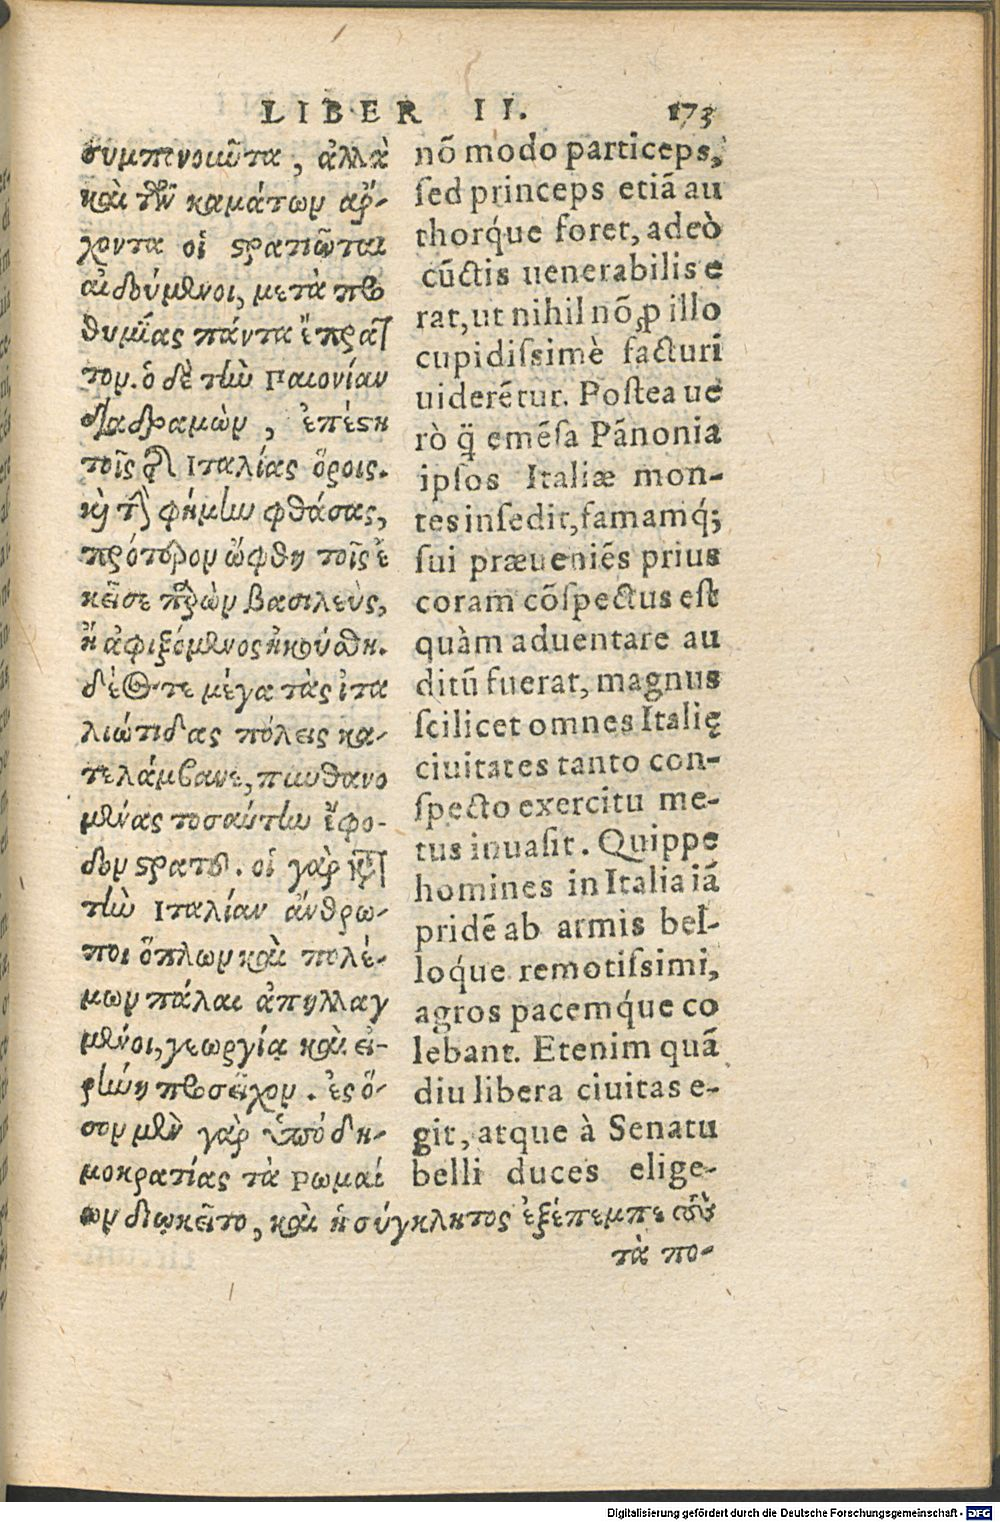 LIBER II. 173
συμπονοῦντα, ἀλλὰ
καὶ τῶν καμάτων ἄρ-
χοντα οἱ στρατιῶται
αἰδούμενοι, μετὰ προ
θυμίας πάντα ἔπρατ
τον. ὁ δὲ τὴν Παιονίαν
διαδραμὼν, ἐπέστη
τοῖς τῆς Ἰταλίας ὅροις.
καὶ τὴν φήμην φθάσας,
πρότερον ὤφθη τοῖς ἐ
κεῖσε παρὼν βασιλεὺς,
ἢ ἀφιξόμενος ἠκούσθη.
δέος τε μέγα τὰς ἰτα
λιώτιδας πόλεις κα-
τελάμβανε, πυνθανο
μένας τοσαύτην ἔφο-
δον στρατοῦ. οἱ γὰρ κατὰ
τὴν Ἰταλίαν ἄνθρω-
ποι ὅπλων καὶ πολέ-
μων πάλαι ἀπηλλαγ
μένοι, γεωργίᾳ καὶ εἰ-
ρήνῃ προσεῖχον. ἐς ὅ-
σον μὲν γὰρ ὑπὸ δη-
μοκρατίας τὰ Ῥωμαί
ων διῳκεῖτο, καὶ ἡ σύγκλητος ἐξέπεμπε τοὺς
τὰ πο-
nō modo particeps,
sed princeps etiā au
thorq́ue foret, adeò
cūctis uenerabilis e
rat, ut nihil nō ꝓ illo
cupidissimè facturi
uiderētur. Postea ue
rò q̈ emēsa Pānonia
ipsos Italiæ mon-
tes insedit, famamq́;
sui præueniēs prius
coram cōspectus est
quàm aduentare au
ditū fuerat, magnus
scilicet omnes Italię
ciuitates tanto con-
specto exercitu me-
tus inuasit. Quippe
homines in Italia iā
pridē ab armis bel-
loq́ue remotissimi,
agros pacemq́ue co
lebant. Etenim quā
diu libera ciuitas e-
git, atque à Senatu
belli duces elige-
Digitalisierung gefördert durch die Deutsche Forschungsgemeinschaft - DFG